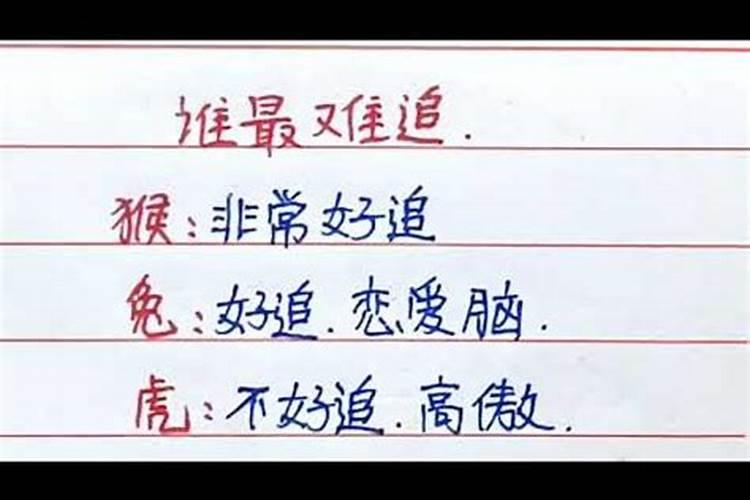 谁最难追.
猴:非常好追
兔:好追.恋爱脑.
虎:不好追.高傲.